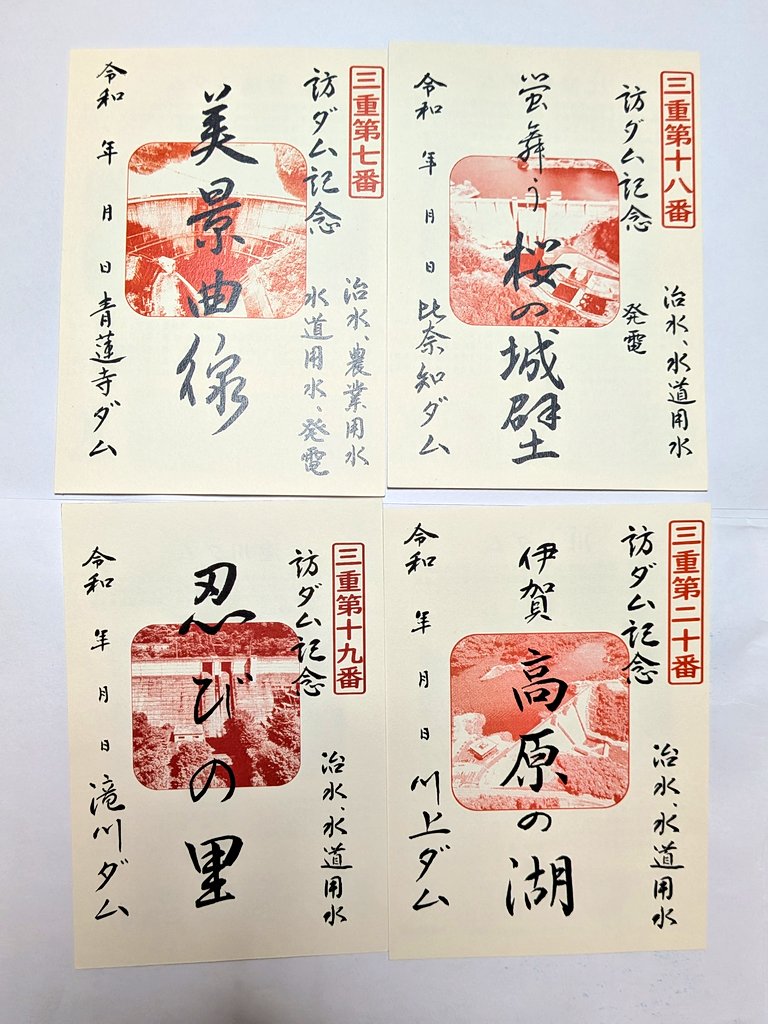 三重第七番
訪ダム記念
治水、農業用水
水道用水、発電
美景曲線
令和 年 月 日
青蓮寺ダム
三重第十八番
訪ダム記念
治水、水道用水
発電
蛍舞う
桜の城壁
令和 年 月 日
比奈知ダム
三重第十九番
訪ダム記念
治水、水道用水
忍びの里
令和 年 月 日
滝川ダム
三重第二十番
訪ダム記念
治水、水道用水
伊賀
高原の湖
令和 年 月 日
川上ダム